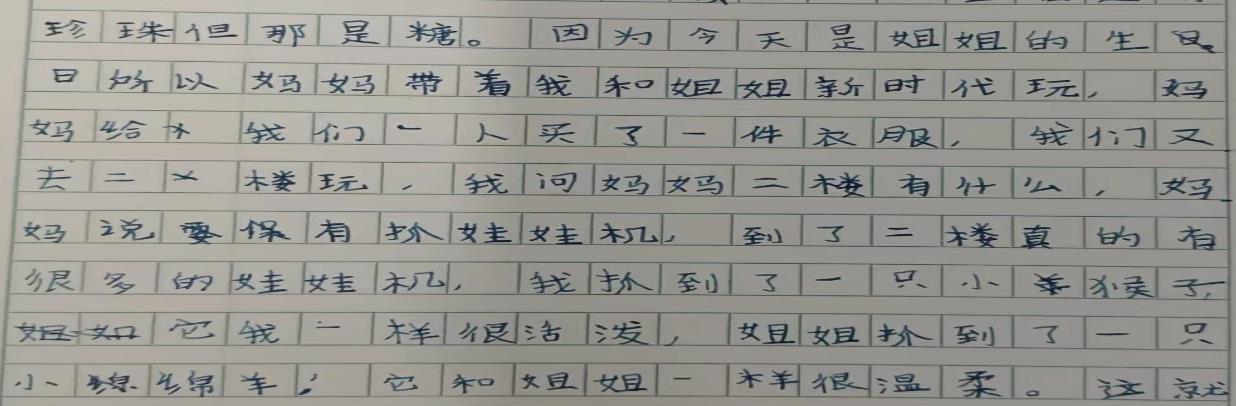 珍珠但那是糖。因为今天是姐姐的生
日所以妈妈带着我和姐姐新时代玩,妈
妈给我们一人买了一件衣服,我们又
去二楼玩,我问妈妈二楼有什么,妈
妈说有抓娃娃机,到了二楼真的有
很多的娃娃机,我抓到了一只小猴子,
它我一样很活泼,姐姐抓到了一只
小绵羊,它和姐姐一样很温柔。这就